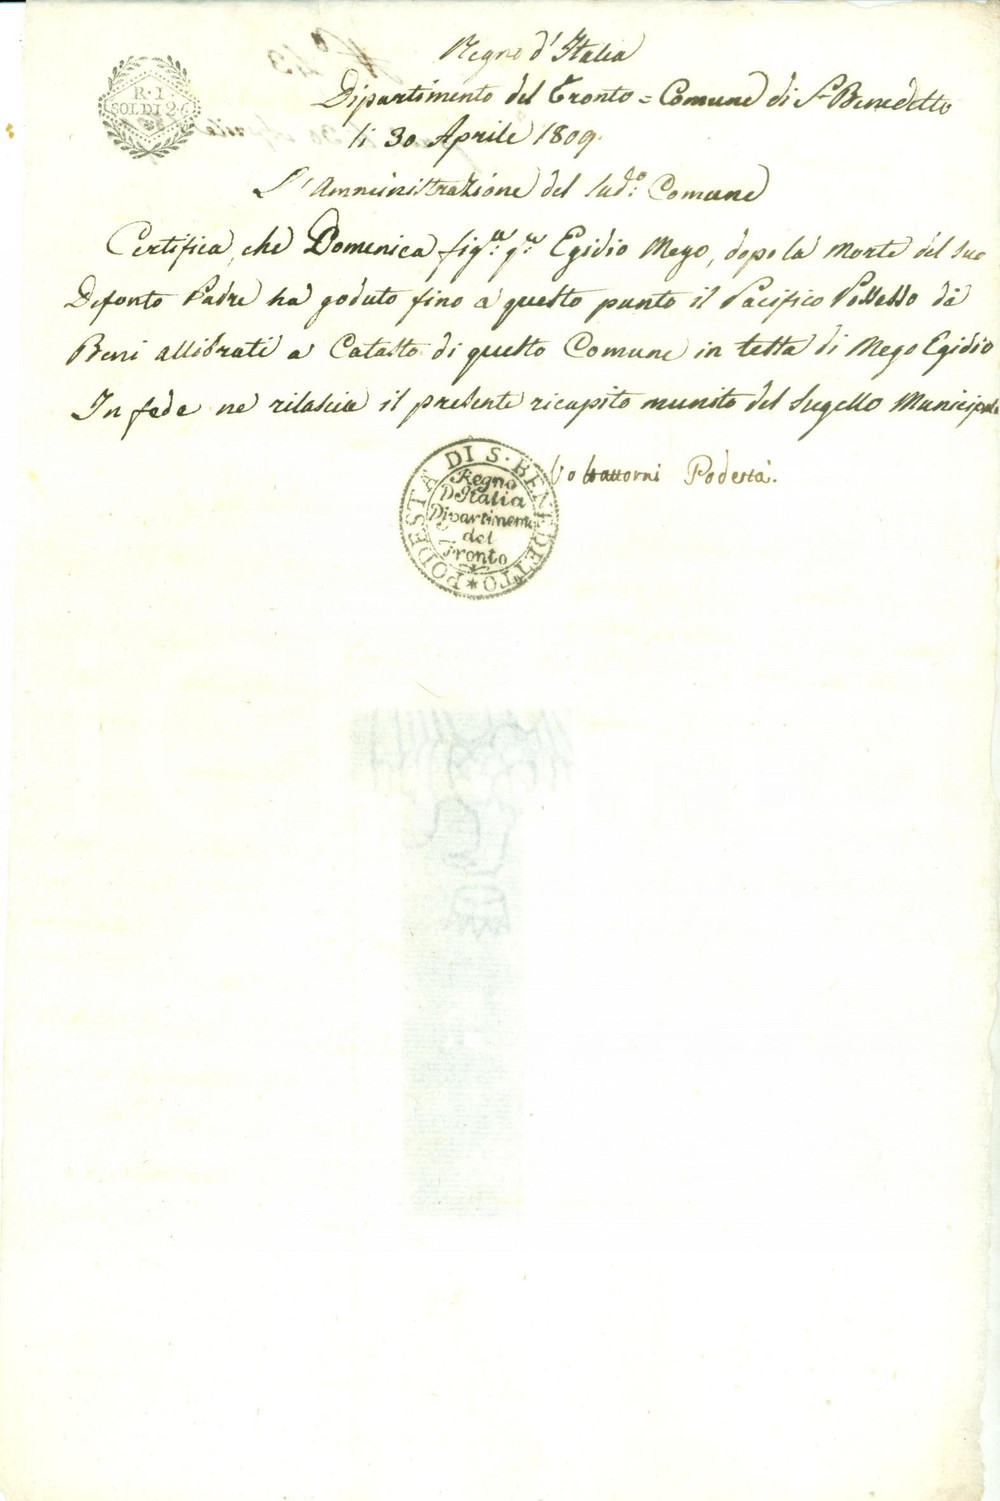 Regno d'Italia
R · I
SOLDI 26
Dipartimento del Tronto = Comune di S. Benedetto
li 30 Aprile 1809.
L'Amministrazione del sud.o Comune
Certifica, che Domenica fig.a q.m Egidio Mego, dopo la morte del suo
Defonto Padre ha goduto fino a questo punto il Pacifico Possesso dà
Beni allibrati a Catasto di questo Comune in testa di Mego Egidio
In fede ne rilascia il presente ricapito munito del Sugello Municipale
Voltattorni Podestà.
PODESTÀ DI S. BENEDETTO
Regno
D'Italia
Dipartimento
del
Tronto